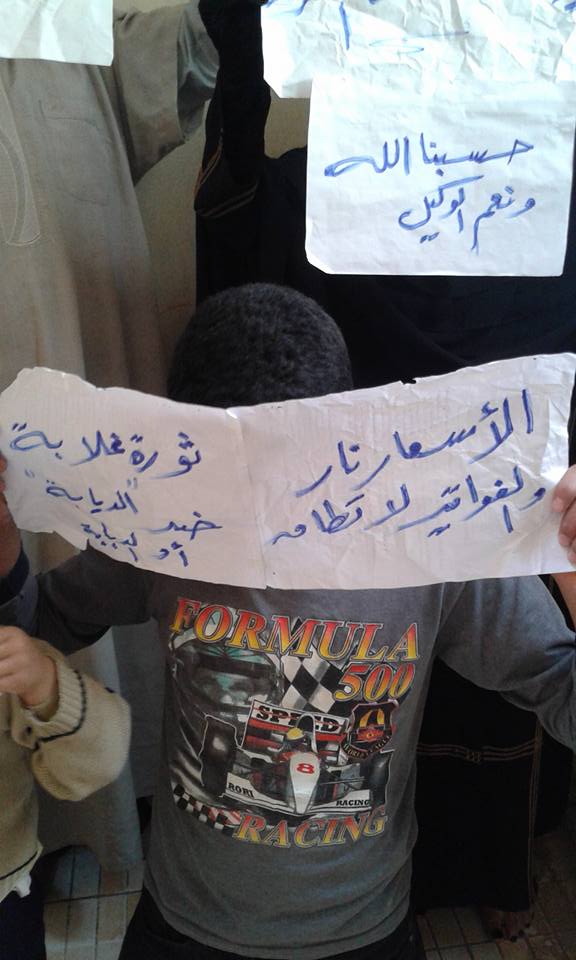 حسبنا الله
ونعم الوكيل
الأسعار نار
والفواتير لا تطاق
ثورة غلابة
ضد "الديابة"
أو الديابة
FORMULA
500
SPEED
WORLD LEAGUE
8
RORI
RACING
RACING